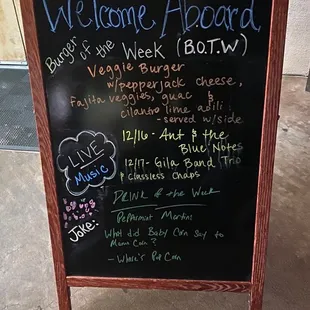 Welcome Aboard
Burger of the Week (B.O.T.W)
Veggie Burger
w/pepperjack cheese,
fajita veggies, guac &
cilantro lime aoili
- served w/side
LIVE
Music
12/16- Ant & the
Blue Notes
12/17- Gila Band Trio
& classless chaps
DRINK of the Week
Peppermint Martini
Joke:
What did Baby Corn say to
Mama Corn?
- Where's Pop Corn